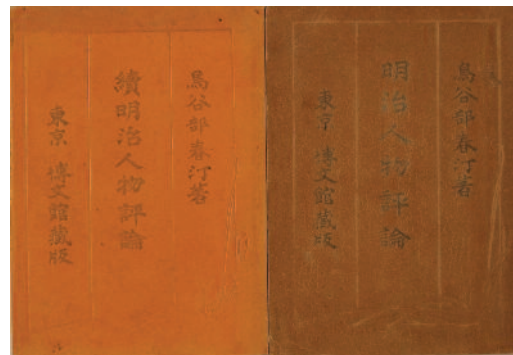 鳥谷部春汀著
明治人物評論
東京 博文館藏版
鳥谷部春汀著
續明治人物評論
東京 博文館藏版